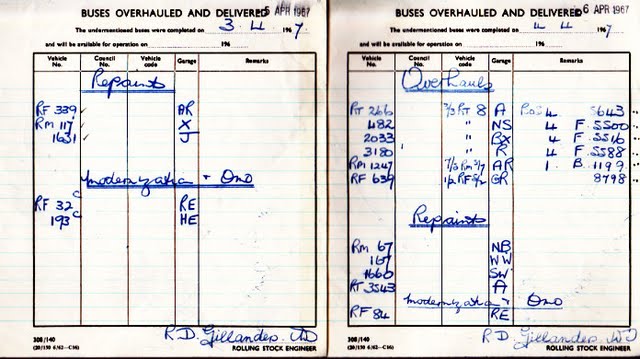 BUSES OVERHAULED AND DELIVERED
5 APR 1967
The undermentioned buses were completed on 3 4 1967
and will be available for operation on 196
Vehicle No. Council No. Vehicle code Garage Remarks
Repaints
RF 339 ✓ AR
RM 117 ✓ X
1631 ✓ J
Modernization + Omo
RF 32 C RE
193 C HE
R.D. Gillandes
308/140
(20/150 6/62—C16) ROLLING STOCK ENGINEER
BUSES OVERHAULED AND DELIVERED
6 APR 1967
The undermentioned buses were completed on 4 4 1967
and will be available for operation on 196
Vehicle No. Council No. Vehicle code Garage Remarks
Overhauls
RT 266 RT 8 A 4 5643
482 " NS 4 F 5500
2033 " BX 4 F 5516
3180 " R 4 F 5588
RM 1247 AR 1 B 1199
RF 639 GR 8798
Repaints
RM 67 NB
167 WW
1660 SW
RT 3543 A
Modernization + Omo
RF 84 RE
R.D. Gillandes
308/140
(20/150 6/62—C16) ROLLING STOCK ENGINEER